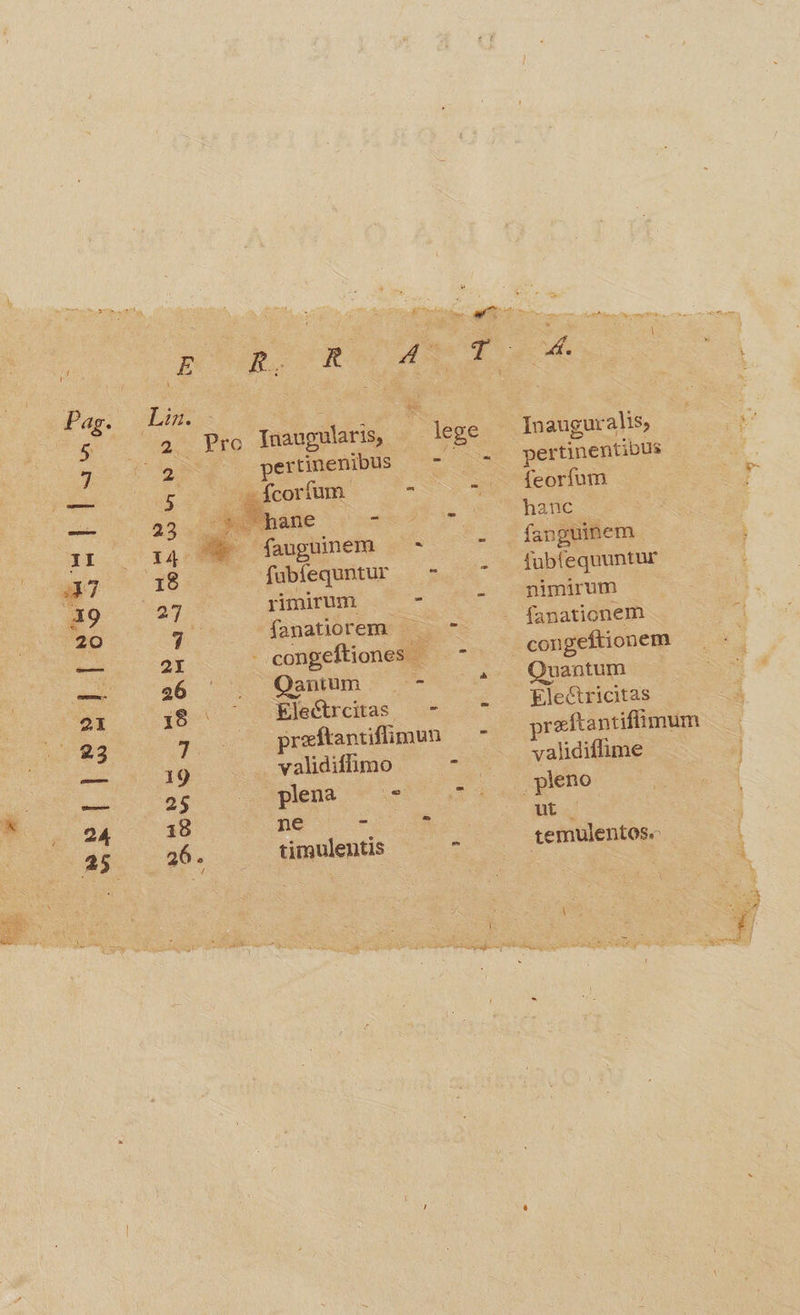 E R R A T A.
Pag. Lin.
5 2 Pro Inaugularis, lege Inauguralis,
7 2 pertinenibus - - pertinentibus
— 5 ſcorſum - - ſeorſum
— 23 hane - - hanc
11 14 ſauguinem - - ſanguinem
17 18 ſubſequntur - - ſubſequuntur
19 27 rimirum - - nimirum
20 7 ſanatiorem - ſanationem
— 21 congeſtiones - congeſtionem
— 26 Qantum - Quantum
21 18 Electrcitas - - Electricitas
23 7 præſtantiſſimun - præſtantiſſimum
— 19 validiſſimo - validiſſime
— 25 plena - - pleno
24 18 ne - - ut
25 26. timulentis - temulentos.